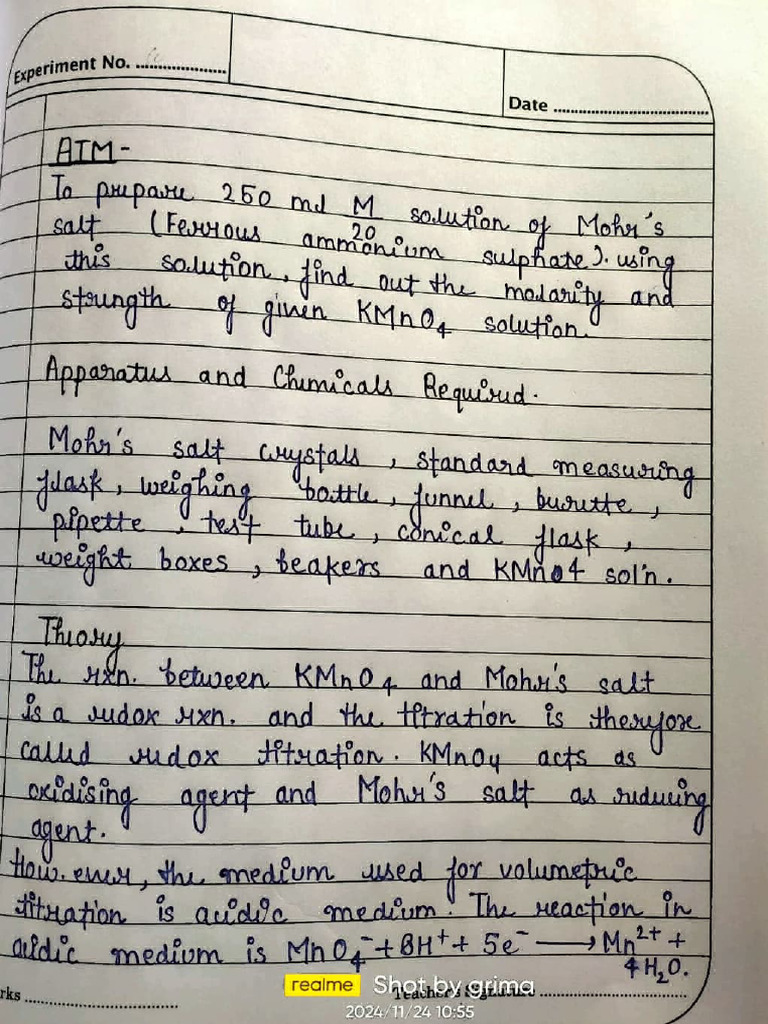 Experiment No. ....................
Date ....................................
AIM -
To prepare 250 ml M/20 solution of Mohr's
salt (Ferrous ammonium sulphate). using
this solution, find out the molarity and
strength of given KMnO₄ solution.
Apparatus and Chemicals Required.
Mohr's salt crystals, standard measuring
flask, weighing bottle, funnel, burette,
pipette, test tube, conical flask,
weight boxes, beakers and KMnO4 sol'n.
Theory
The rxn. between KMnO₄ and Mohr's salt
is a redox rxn. and the titration is therefore
called redox titration. KMnO₄ acts as
oxidising agent and Mohr's salt as reducing
agent.
How.ever, the medium used for volumetric
titration is acidic medium. The reaction in
acidic medium is MnO₄⁻ + 8H⁺ + 5e⁻ ⟶ Mn²⁺ +
4H₂O.
rks ....................................
Teacher's Signature ....................................
realme Shot by grima
2024/11/24 10:55